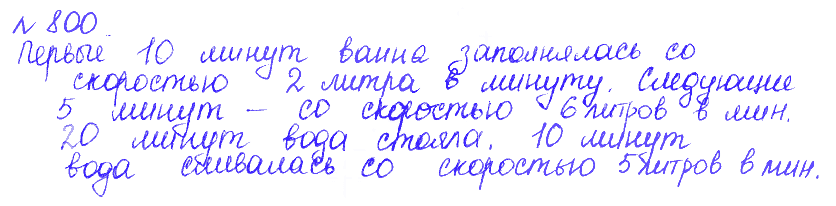 № 800.
Первые 10 минут ванна заполнялась со
скоростью 2 литра в минуту. Следующие
5 минут – со скоростью 6 литров в мин.
20 минут вода стояла. 10 минут
вода сливалась со скоростью 5 литров в мин.